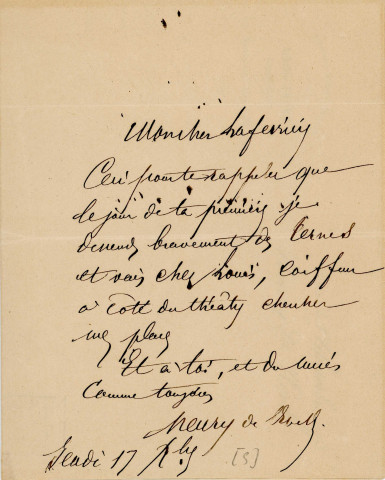 Mon cher Laferrière
Ceci pour te rappeler que
le jour de ta première je
demeure bravement des Ternes
et vais chez Louis, coiffeur
à côté du théâtre chercher
ma place
Et à toi, et du succès
comme toujours
Henry de Kock.
Jeudi 17 Xbre [S]